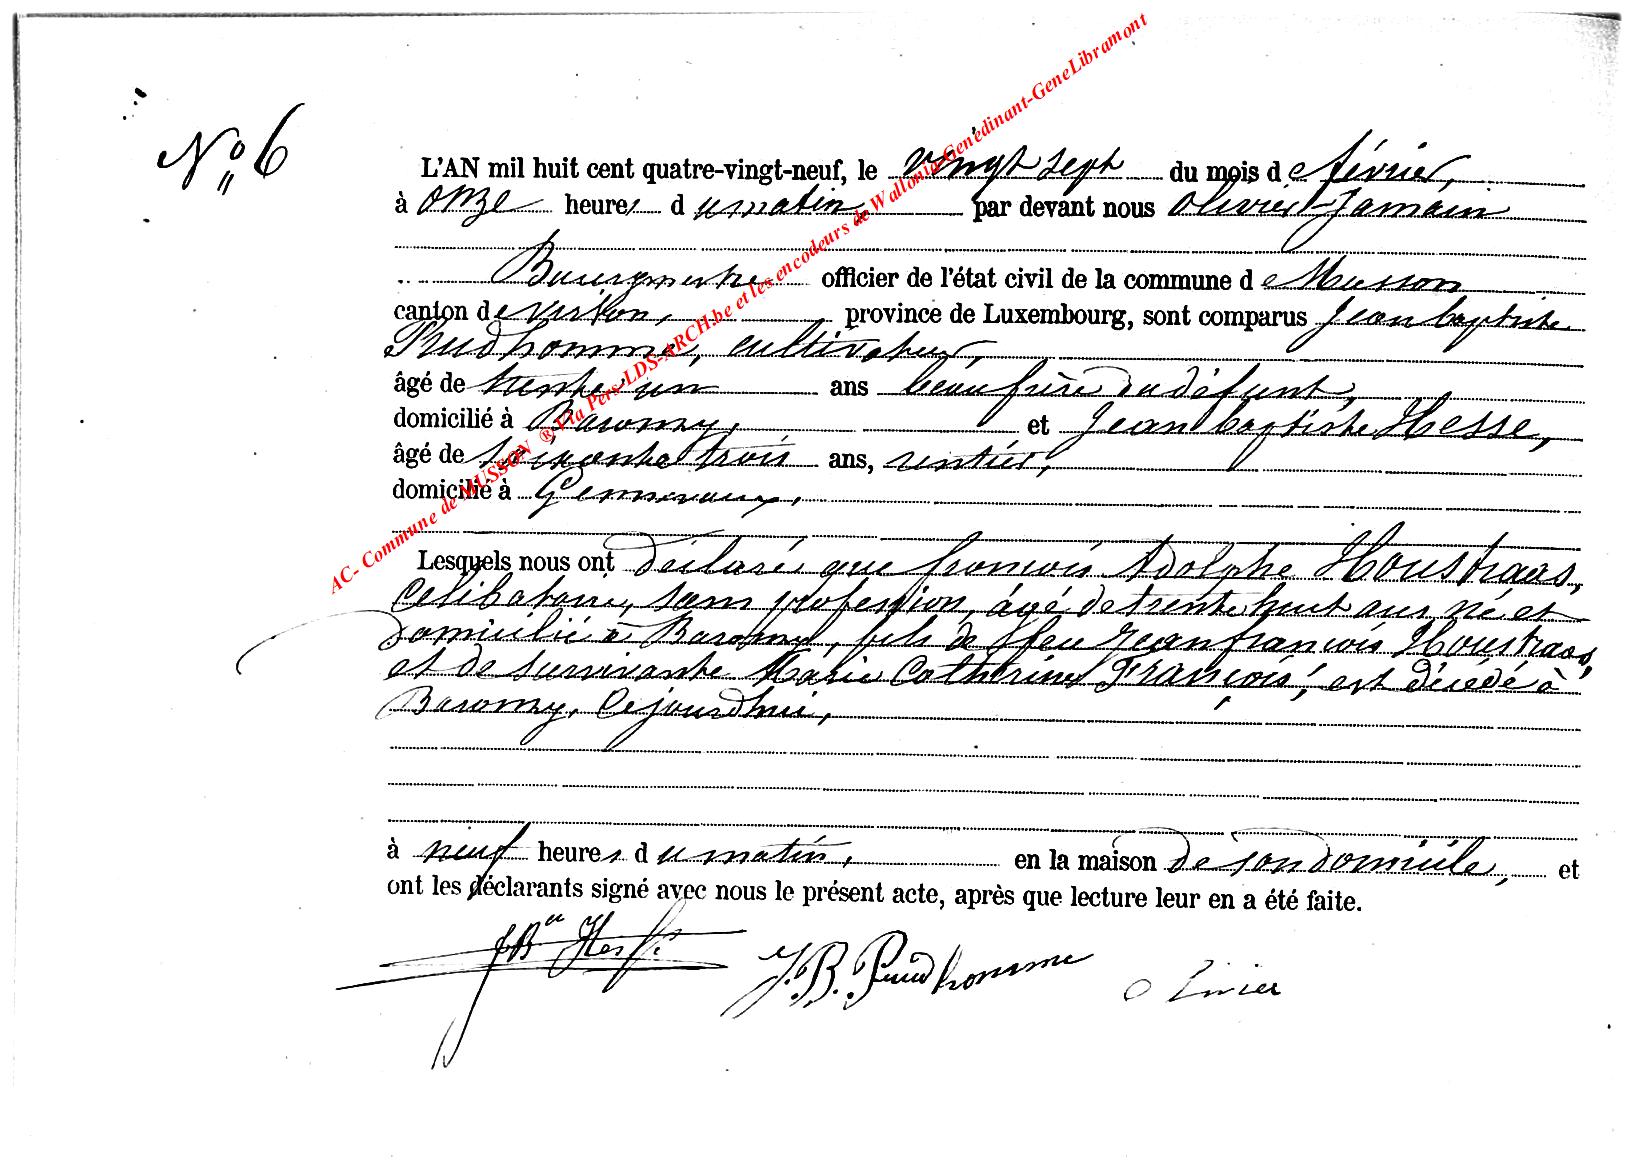 N° 6
AC- Commune de MUSSON ® Via Pers-LDS-ARCH.be et les encodeurs de Wallonia-Genedinant-GeneLibramont
L'AN mil huit cent quatre-vingt-neuf, le vingt sept du mois de février,
à onze heures du matin, par devant nous Olivier Jamain
Bourgmestre officier de l'état civil de la commune de Musson
canton de Virton, province de Luxembourg, sont comparus Jean baptiste
Prudhomme, cultivateur,
âgé de trente un ans beau frère du défunt,
domicilié à Baromzy, et Jean baptiste Hesse,
âgé de soixante trois ans, rentier,
domicilié à Gennevaux,
Lesquels nous ont déclaré que francois Adolphe Houstraas,
Celibataire, sans profession, âgé de trente huit ans né et
domicilié à Baromzy, fils de feu Jean françois Houstraas,
et de survivante Marie Catherine François, est décédé à
Baromzy, Cejourdhui,
à neuf heures du matin, en la maison de son domicile, et
ont les déclarants signé avec nous le présent acte, après que lecture leur en a été faite.
JBte Hesse J. B. Prudhomme Olivier